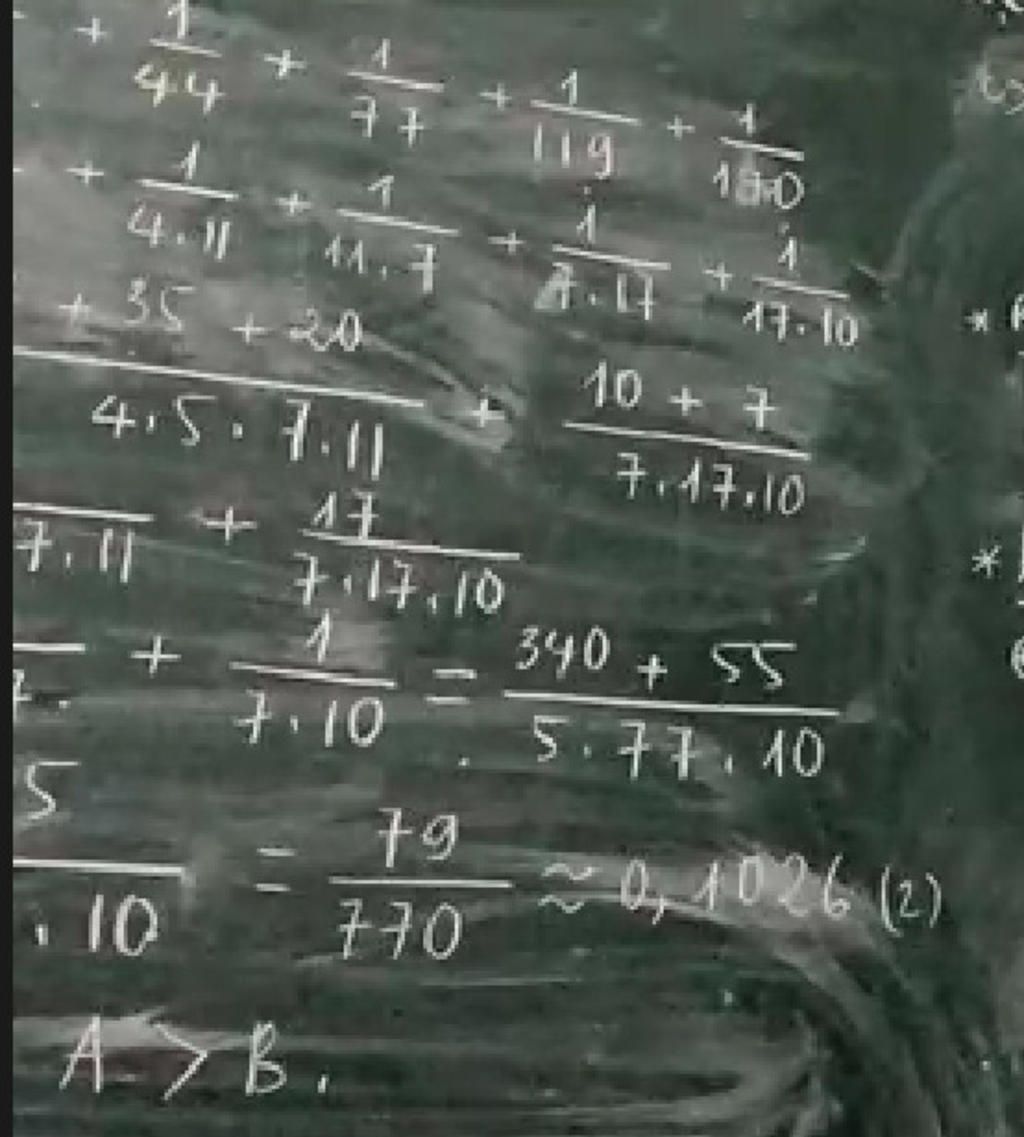 + 1/44 + 1/77 + 1/119 + 1/170
+ 1/4.11 + 1/11.7 + 1/7.17 + 1/17.10
+ 35 + 20/4.5.7.11 + 10 + 7/7.17.10
/7.11 + 17/7.17.10
/7. + 1/7.10 = 340 + 55/5.77.10
5/.10 = 79/770 ≈ 0,1026 (2)
A > B.